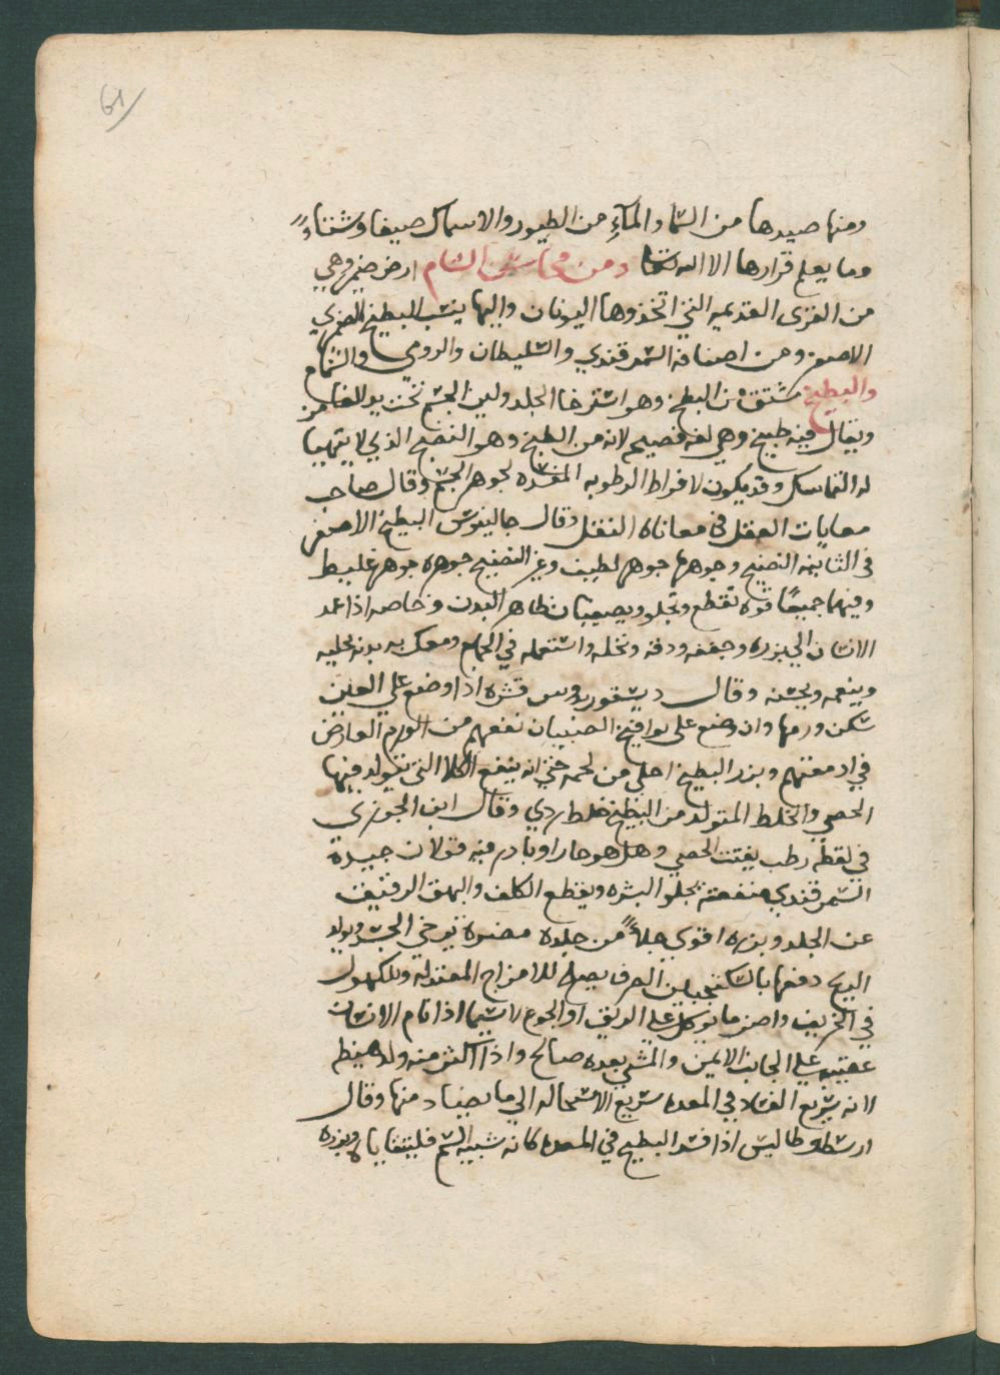 61
ومنها صيدها من السماء والمآء من الطيور والاسماك صيفا وشتاءً
وما يعلم قرارها الا الله تعالى ومن محاسن الشام ارض ضمير وهي
من القرى القديمه التي اتخذوها اليونان واليها ينسب البطيخ الضميري
الاصفر ومن اصنافه السمرقندي والسليطان والرومي والشمام
والبطيخ مشتق من البطخ وهو استرخا الجلد ولين الجسم تحت يد الغامز
ويقال فيه طبيخ وهي لغه فصيحه لانه من الطبخ وهو النضج الذي لا يتهيا
له التماسك وقد يكون لافراط الرطوبه المفسده لجوهر الجسم وقال صاحب
معايات العقل في معاناة النقل وقال جالينوس البطيخ الاصفر
في الثانيه النضيج وجوهرها جوهر لطيف وغير النضيج جوهره جوهر غليظ
وفيهما جميعًا قوه تقطع وتجلو ويصفيان ظاهر البدن وخاصه اذا عمد
الانسان الي بزره وجففه ودقه ونخله واستعمله في الحمام ومعك به بدنه يجليه
وينعمه ويحسنه وقال ديسقوريدوس قشره اذا وضع علي العين
سكن ورمها وان وضع على يوافيخ الصبيان نفعهم من الورم العارض
في ادمغتهم وبزر البطيخ اجلي من لحمه حتي انه ينفع الكلا التي تتولد فيها
الحصي والخلط المتولد من البطيخ خلط ردي وقال ابن الجوزى
في لقطه رطب يفتت الحصي وهل هو حار او بارد فيه قولان جيده
السمرقندي منفعته يجلو البشره ويقطع الكلف والبهق الرقيق
عن الجلد وبزره اقوي جلاًء من جلده مضرة يرخي الجسد ويولد
الريح دفعها بالسكنجبين الصرف يصلح للامزاج المعتدله وللكهول
في الخريف واضر ما يوكل علي الريق او الجوع لاسيما اذا نام الانسان
عقيبه علي الجانب الايمن والمشي بعده صالح واذا اكثر منه ولد هيضه
لانه سريع الفساد في المعده سريع الاستحاله الي ما يضاد منها وقال
ارسطوطاليس اذا فسد البطيخ في المعده كانه شبيه السم فليتقاياه وبزره